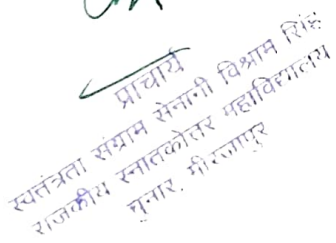 प्राचार्य
स्वतंत्रता संग्राम सेनानी विश्राम सिंह
राजकीय स्नातकोत्तर महाविद्यालय
चुनार, मीरजापुर